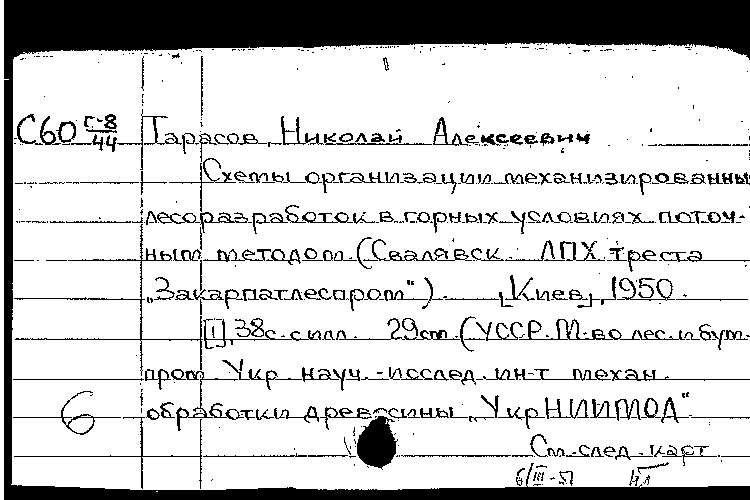 С60 Г-8/44 Тарасов, Николай Алексеевич
Схемы организации механизированны
лесоразработок в горных условиях поточ-
ным методом (Свалявск. ЛПХ треста
„Закарпатлеспром"). [Киев], 1950.
[1], 38с. с илл. 29см. (УССР. М-во лес. и бум.
пром. Укр. науч.-исслед. ин-т механ.
обработки древесины „УкрНИИМОД"
6
См. след. карт
6/III-51 НЛ